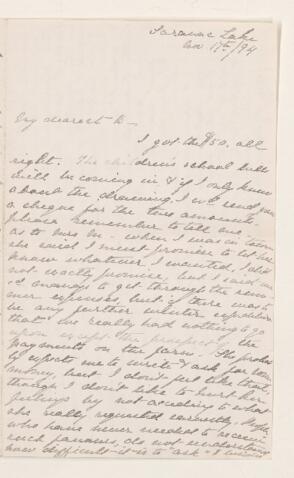 Saranac Lake
Nov 17th/94
My dearest D—
I got the $50. all
right. The children's school bills
will be coming in & if I only knew
about the drawing, I wd send you
a cheque for the two amounts.
please remember to tell me.
as to Mrs M— when I was in town
she said I must promise to let her
know whatever I wanted. I did
not exactly promise, but I said
I managed to get through the sum-
mer expenses, but if there was to
be any further winter expedition
that we really had nothing to go
upon except the prospect of the
payments on the farm. She probab-
ly expects me to write & ask for
money, but I don't just like that,
though I don't like to hurt her
feelings by not acceding to what
she really requested earnestly. People
who have never needed to receive
such favours, do not understand
how difficult it is to "ask".